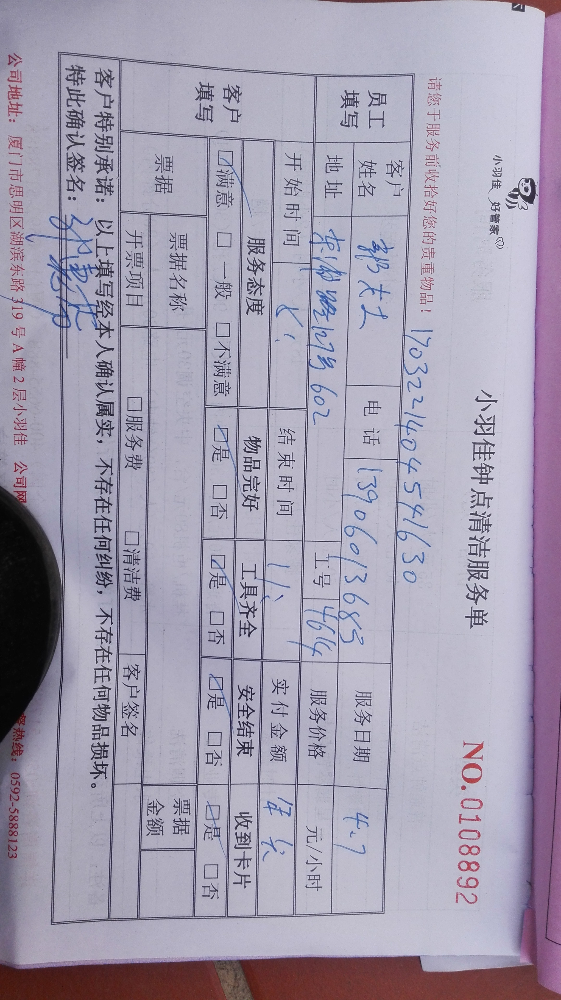 小羽佳 好管家
小羽佳钟点清洁服务单
NO.0108892
请您于服务前收拾好您的贵重物品！
1703221404541630
员工填写
客户姓名 郭女士 电话 13906013683 服务日期 4.7
地址 602 工号 4614 服务价格 元/小时
开始时间 8: 结束时间 11: 实付金额
客户填写
服务态度 物品完好 工具齐全 安全结束 收到卡片
☑满意 □一般 □不满意 ☑是 □否 ☑是 □否 ☑是 □否 ☑是 □否
票据 票据名称 票据金额
开票项目 □服务费 □清洁费 客户签名
客户特别承诺：以上填写经本人确认属实，不存在任何纠纷，不存在任何物品损坏。
特此确认签名：
公司地址：厦门市思明区湖滨东路 319 号 A 幢 2 层小羽佳 公司网
热线：0592-5888123